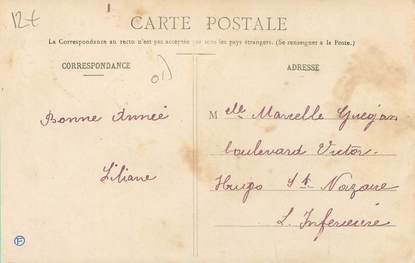 12€
CARTE POSTALE
La Correspondance au recto n'est pas acceptée par tous les pays étrangers. (Se renseigner à la Poste.)
CORRESPONDANCE
ADRESSE
Bonne Année
Liliane
Melle Marcelle
boulevard Victor-
Hugo St. Nazaire
L. Inférieure
F